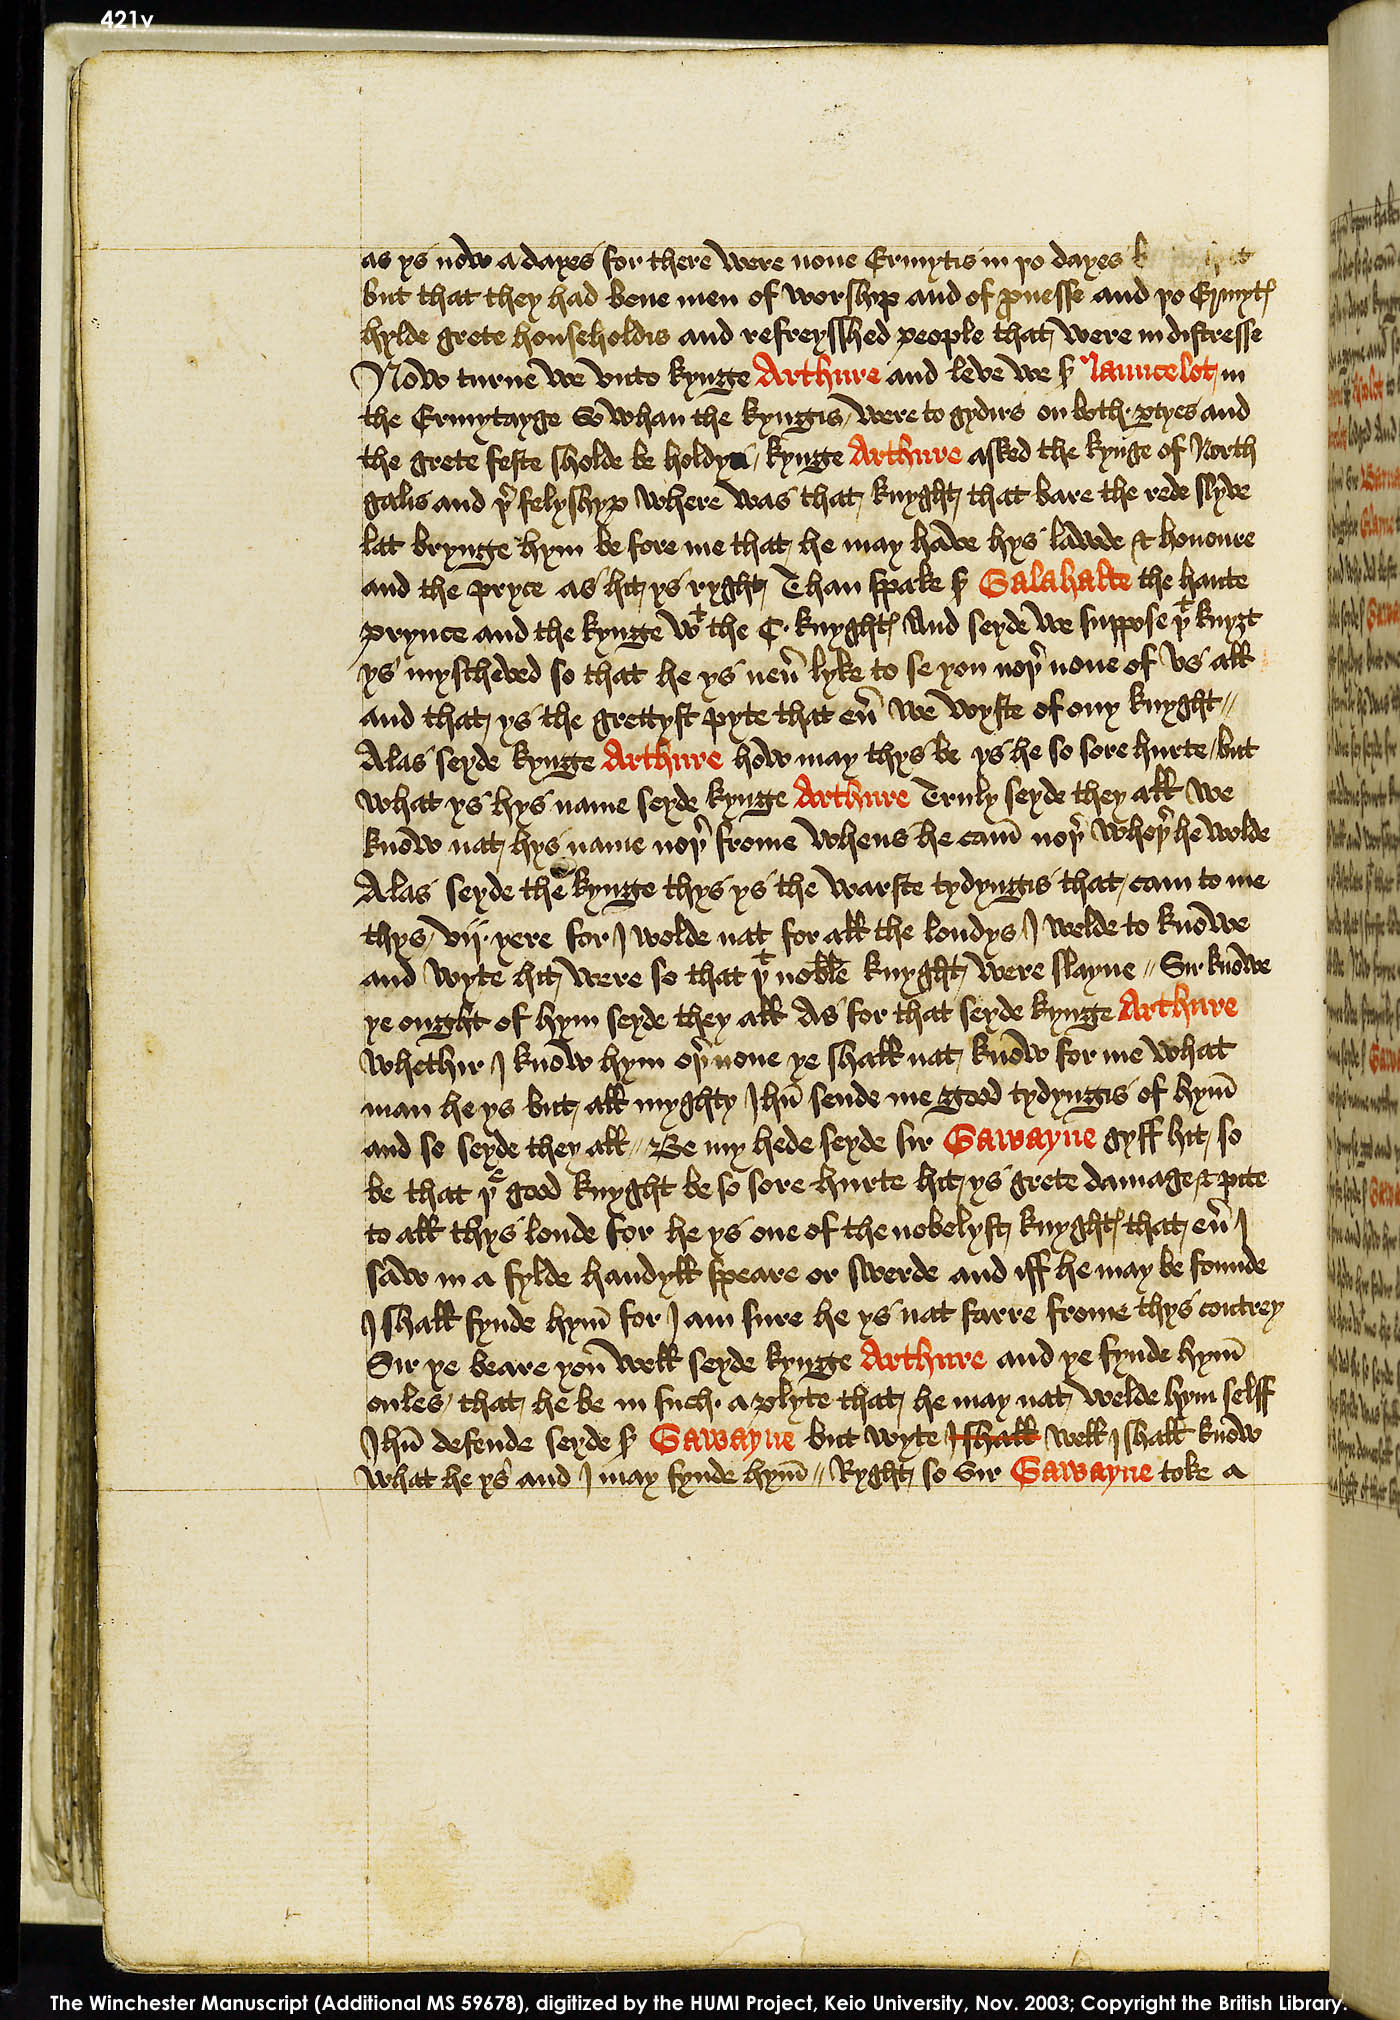 421v
as ys now a dayes for there were none Ermytis in þo dayes
but that they had bene men of worshyp and of prouesse and þo Ermytꝭ
hylde grete householdis and refreysshed people that were in distresse
Now turne we vnto kynge Arthure and leve we Sꝭ launcelot in
the Ermytayge So whan the kyngis were to gydirs on both ꝑtyes and
the grete feste sholde be holdyn kynge Arthure asked the kynge of North
galis and þr felyshyp where was that knyght that bare the rede slyve
lat brynge hym be fore me that he may have hys lawde & honoure
and the pryce as hit ys ryght Than spake Sꝭ Galahalte the haute
prynce and the kynge wt the C· knyghtꝭ And seyde we suppose þt knyȝt
ys myscheved so that he ys neũ lyke to se you noþr none of vs all
and that ys the grettyst pyte that eũ we wyste of ony knyght //
Alas seyde kynge Arthure how may thys be ys he so sore hurte / but
what ys hys name seyde kynge Arthure Truly seyde they all we
know nat hys name noþr frome whens he cam̄ noþr wheþr he wolde
Alas seyde the kynge thys ys the warste tydyngis that cam to me
thys vij· yere for I wolde nat for all the londys I welde to knowe
and wyte hit were so that þt noble knyght were slayne // Sir knowe
ye ought of hym seyde they all As for that seyde kynge Arthure
whethir I know hym oþr none ye shall nat know for me what
man he ys but all myghty Ihū sende me good tydyngis of hym̄
and so seyde they all // Be my hede seyde sir Gawayne gyff hit so
be that þe good knyght be so sore hurte hit ys grete damage & pite
to all thys londe for he ys one of the nobelyst knyghtꝭ that eũ I
saw in a fylde handyll speare or swerde and iff he may be founde
I shall fynde hym̄ for I am sure he ys nat farre frome thys contrey
Sir ye beare you well seyde kynge Arthure and ye fynde hym̄
onles that he be in such· a plyte that he may nat welde hym selff
Ihū defende seyde Sꝭ Gawayne but wyte I shall well I shall know
what he ys and I may fynde hym̄ // Ryght so Sir Gawayne toke a
The Winchester Manuscript (Additional MS 59678), digitized by the HUMI Project, Keio University, Nov. 2003; Copyright the British Library.